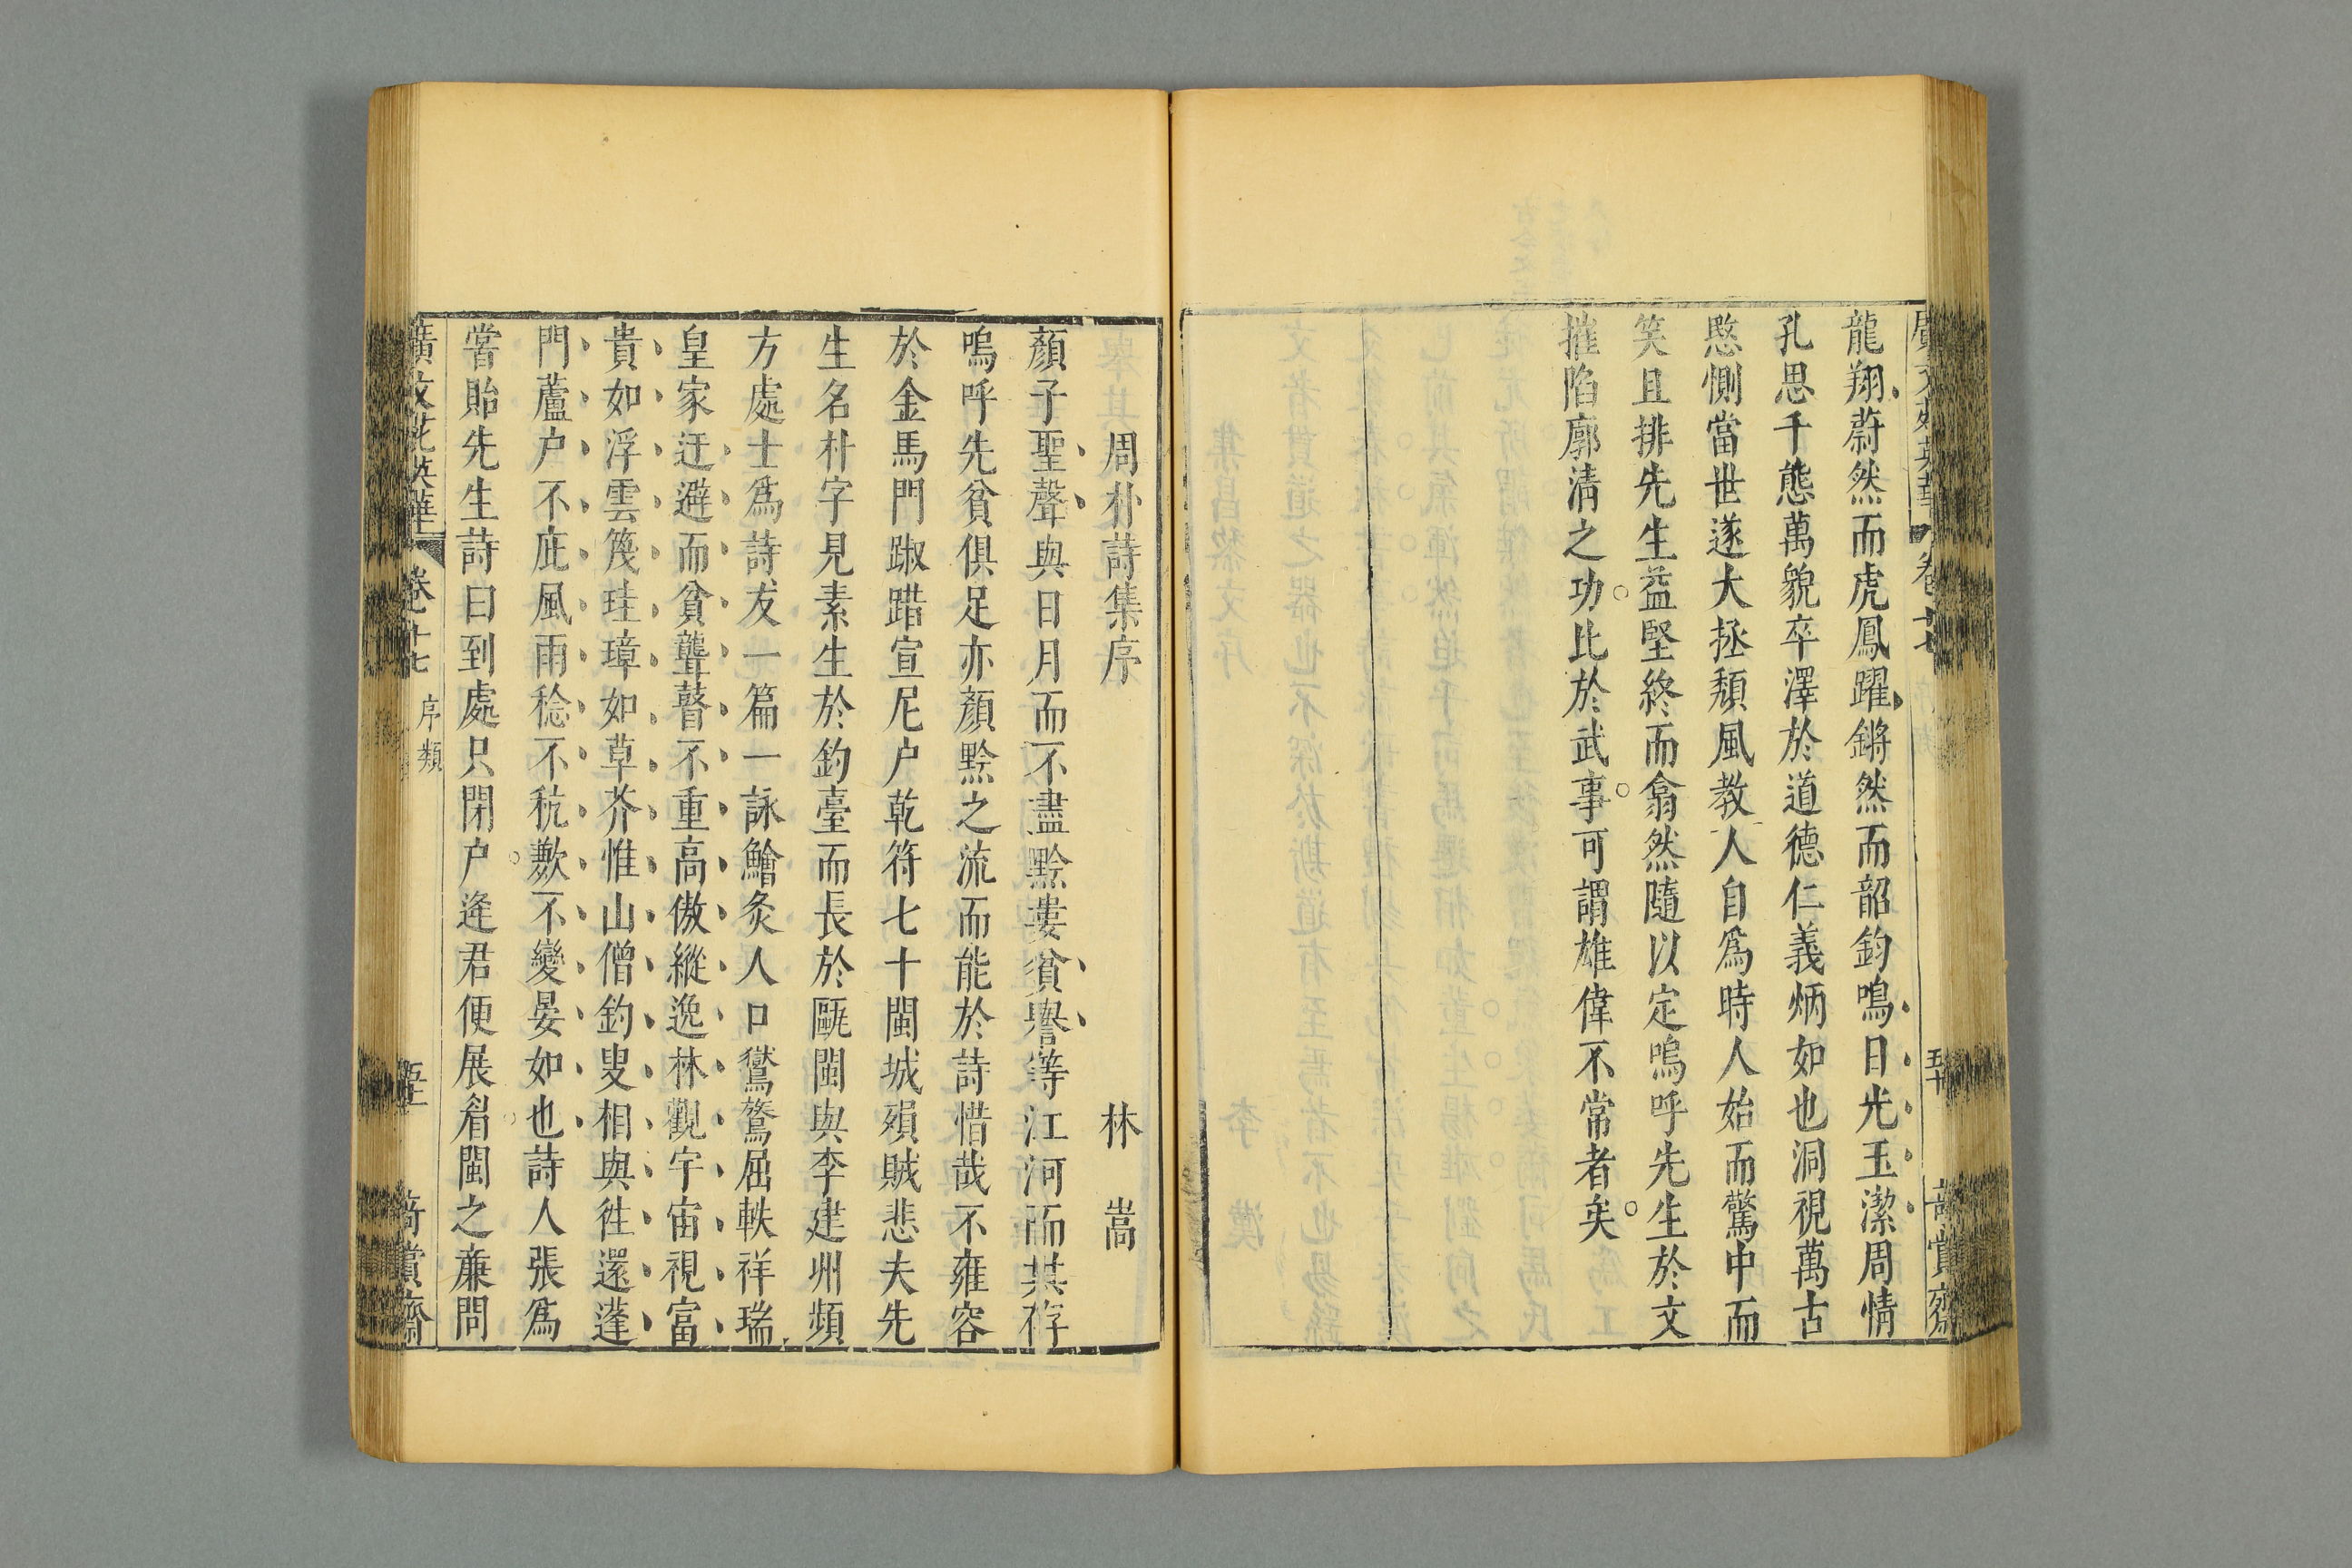 龍翔蔚然而虎鳳躍鏘然而韶鈞鳴日光玉潔周情
孔思千態萬貌卒澤於道德仁義炳如也洞視萬古
愍惻當世遂大拯頹風教人自爲時人始而驚中而
笑且排先生益堅終而翕然隨以定嗚呼先生於文
摧陷廓清之功比於武事可謂雄偉不常者矣
周朴詩集序 林嵩
顏子聖聲與日月而不盡黔婁貧譽等江河而其存
嗚呼先貧俱足亦顏黔之流而能於詩惜哉不雍容
於金馬門踧踖宣尼户乾符七十閩城殞賊悲夫先
生名朴字見素生於釣臺而長於甌閩與李建州頻
方處士爲詩友一篇一詠鱠炙人口鸑鷟屈軼祥瑞
皇家迂避而貧聾瞽不重高傲縱逸林觀宇宙視富
貴如浮雲篾珪璋如草芥惟山僧釣叟相與徃還蓬
門蘆户不庇風雨稔不秔歉不變晏如也詩人張爲
嘗貽先生詩曰到處只閉户逢君便展眉閩之廉問
廣文苑英華 卷十七 序類